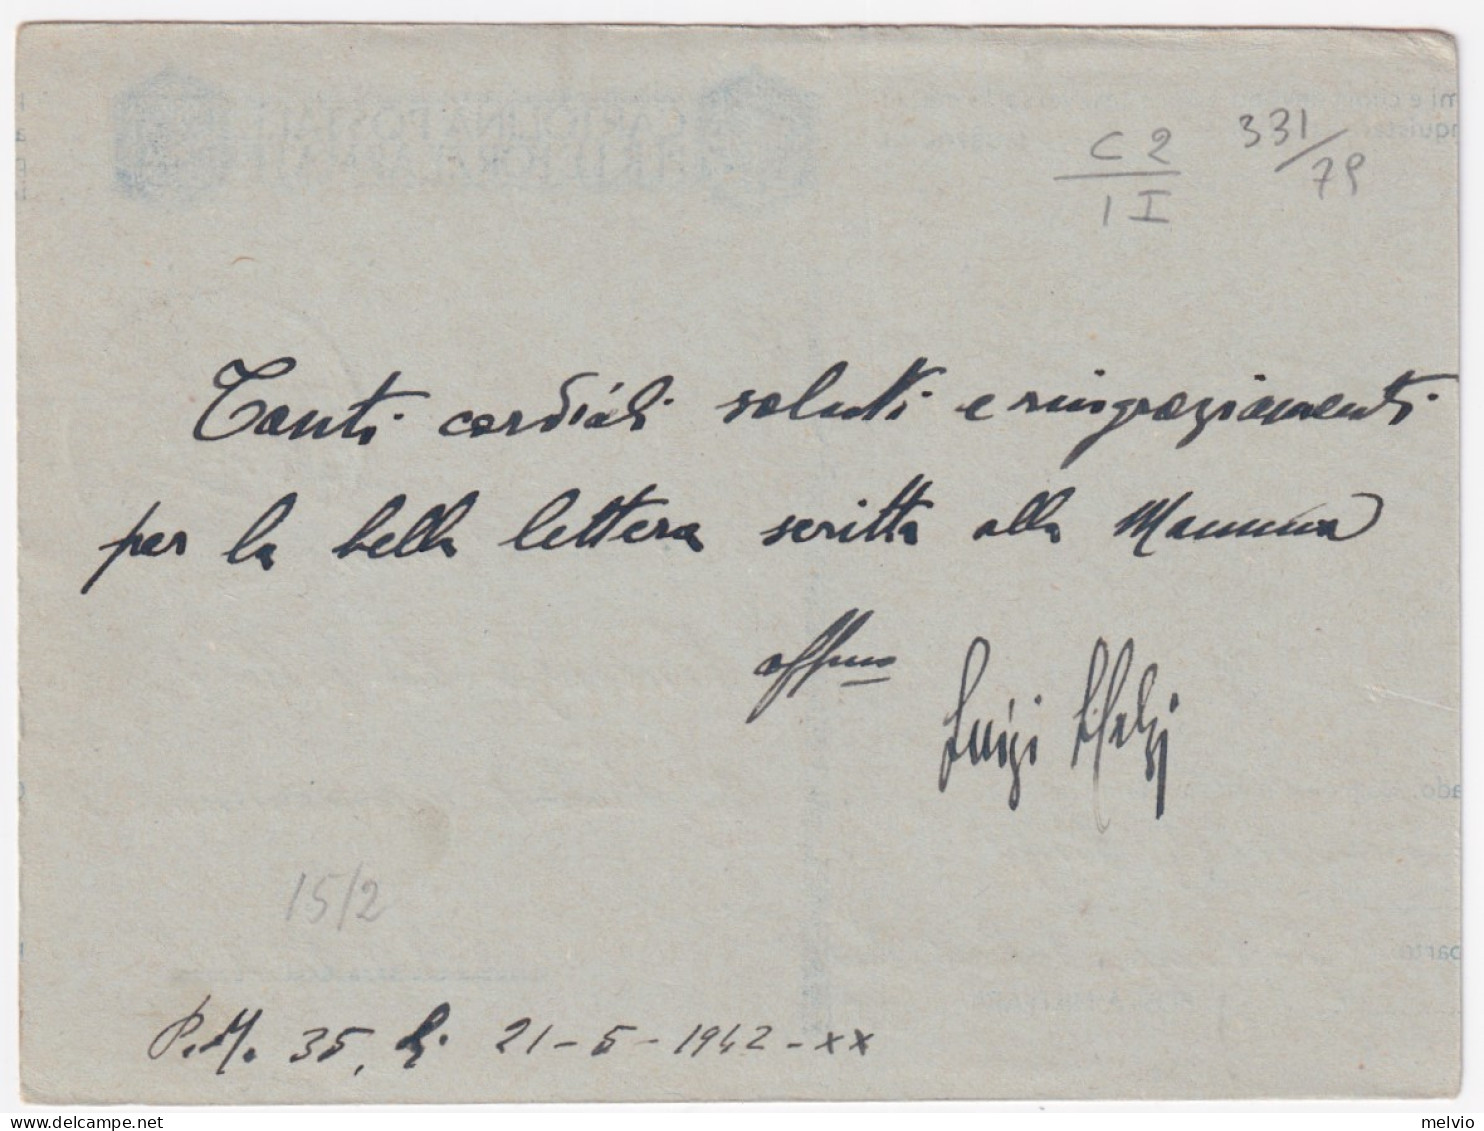 C 2
1 I
331/79
Tanti cordiali saluti e ringraziamenti
per la bella lettera scritta alla Mamma
affmo
Luigi
15/2
P.M. 35, li 21-5-1942-XX
melvio